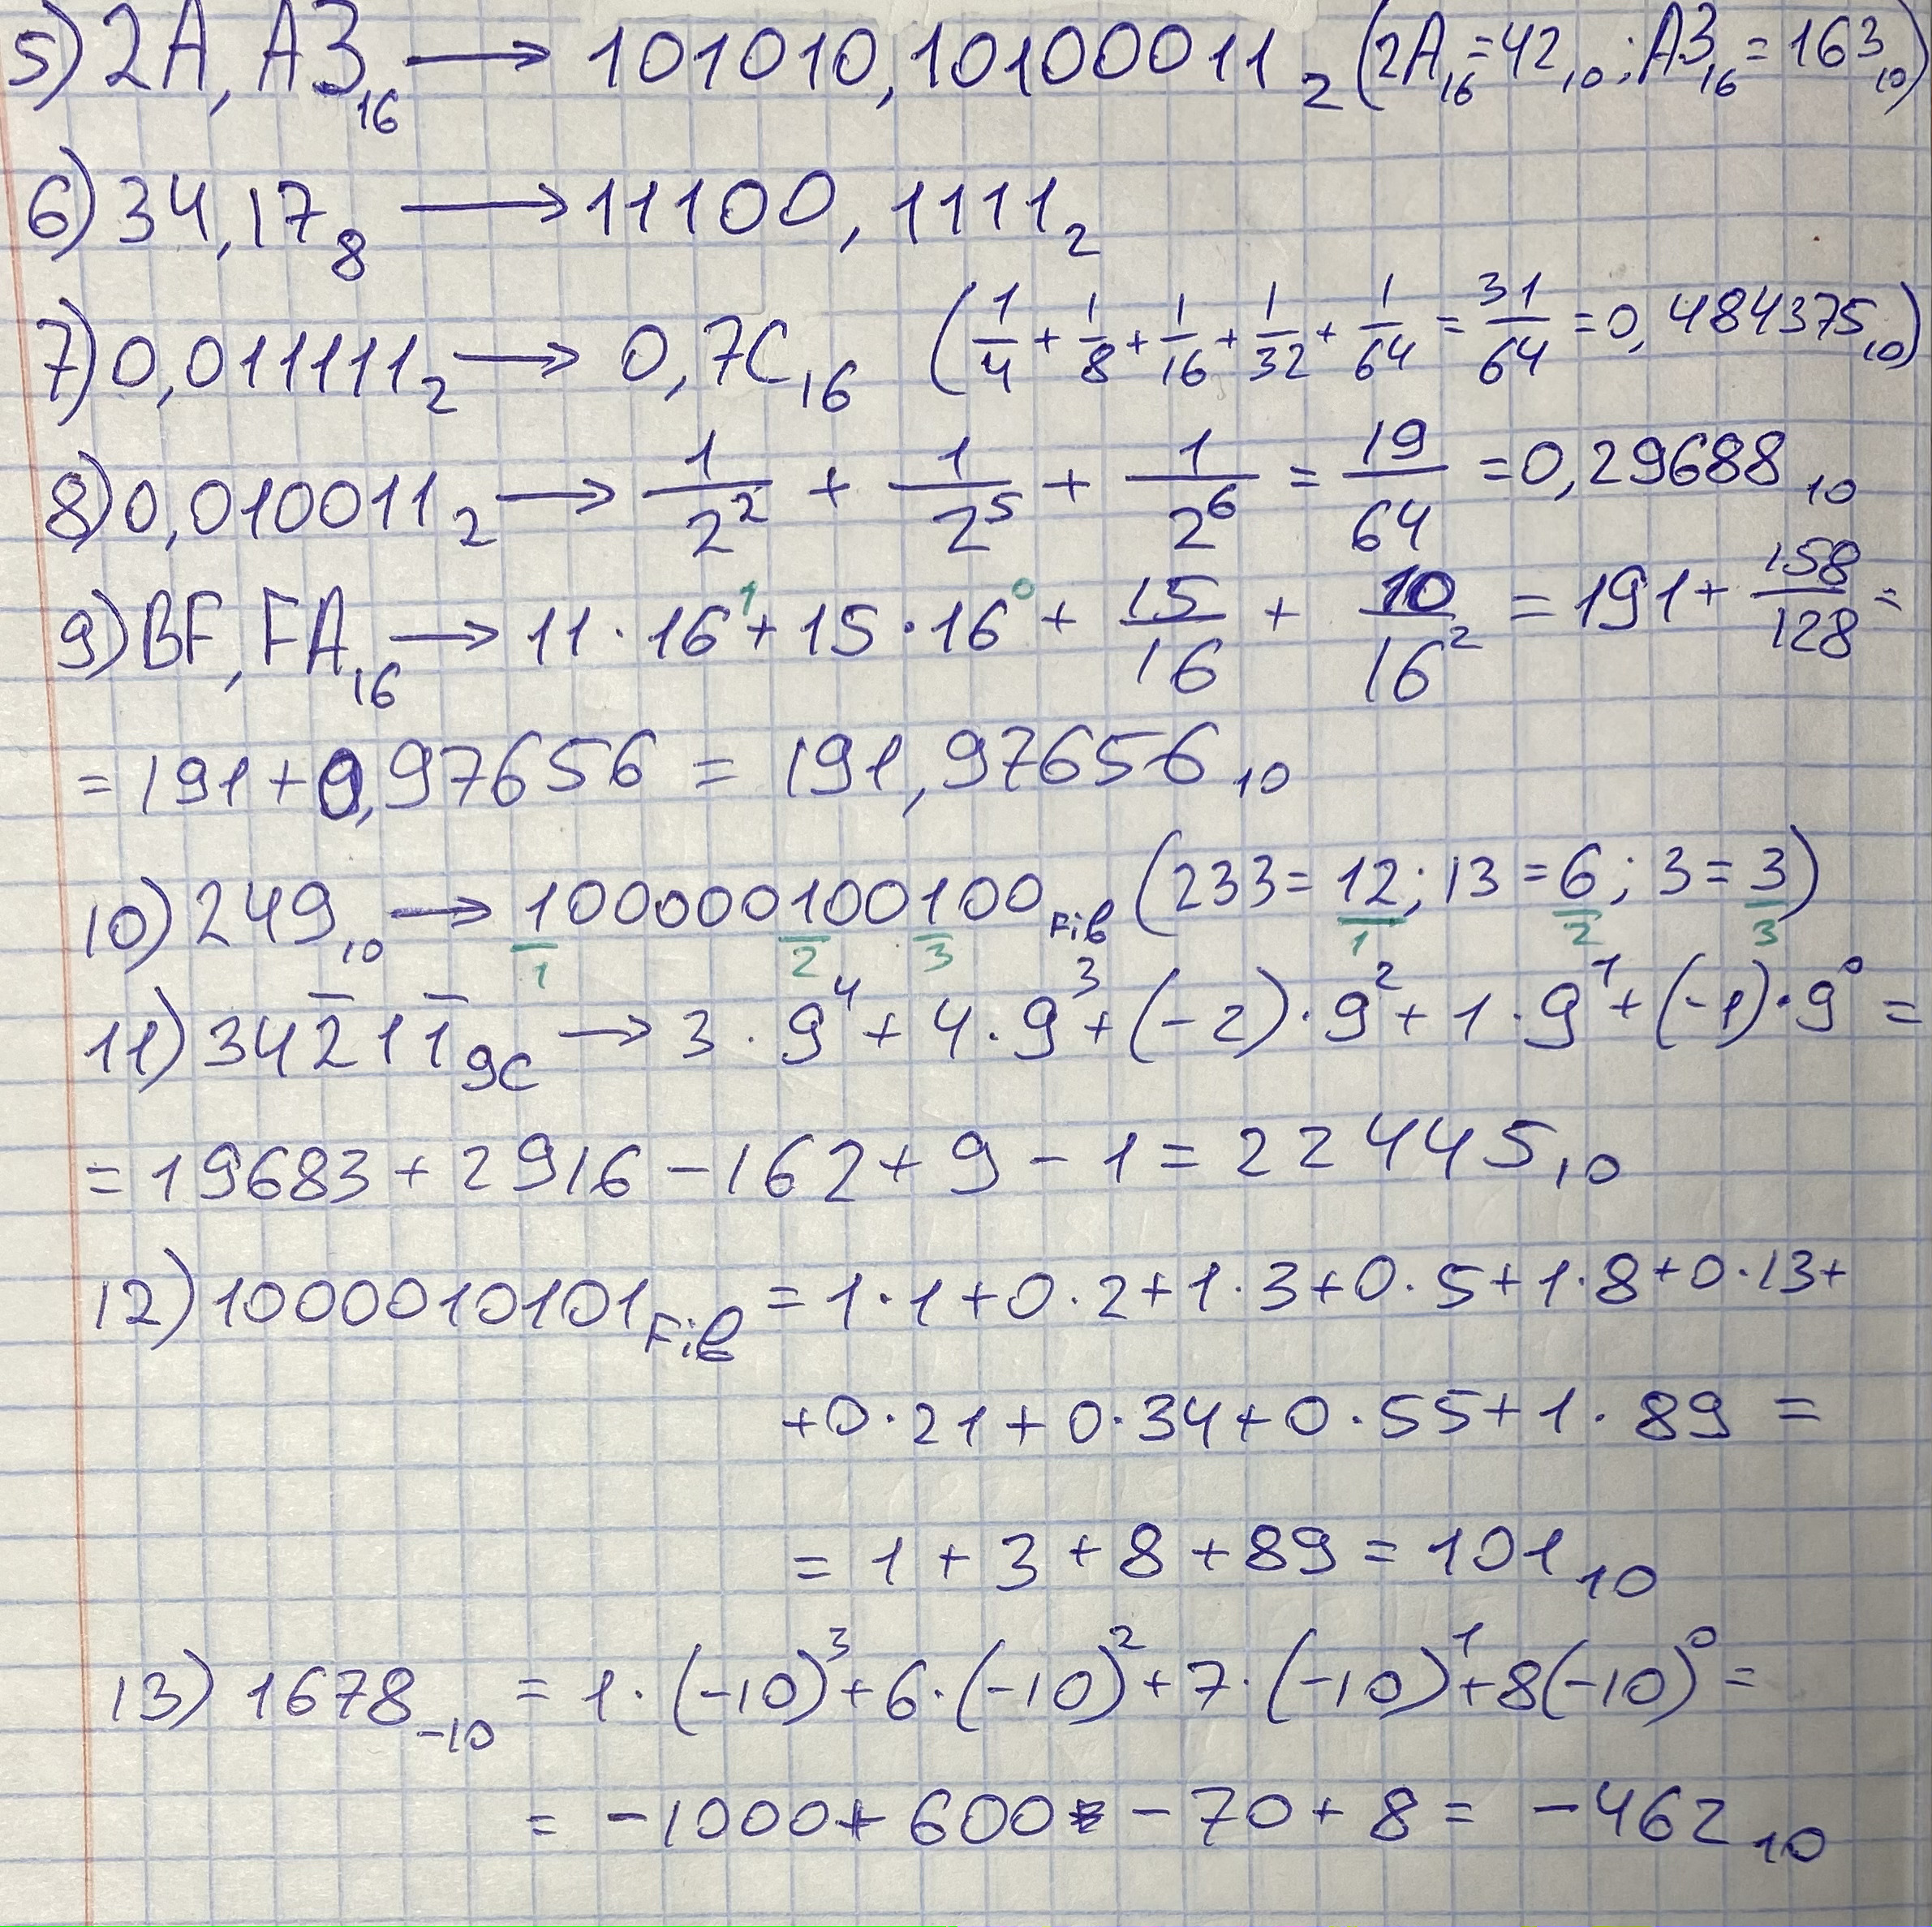 5) 2A,A3₁₆ → 101010,10100011₂ (2A₁₆=42₁₀; A3₁₆=163₁₀)
6) 34,17₈ → 11100,1111₂
7) 0,011111₂ → 0,7C₁₆ (1/4 + 1/8 + 1/16 + 1/32 + 1/64 = 31/64 = 0,484375₁₀)
8) 0,010011₂ → 1/2² + 1/2⁵ + 1/2⁶ = 19/64 = 0,29688₁₀
9) BF,FA₁₆ → 11·16¹ + 15·16⁰ + 15/16 + 10/16² = 191 + 158/128 =
= 191 + 0,97656 = 191,97656₁₀
10) 249₁₀ → 100000100100_Fib (233 = 12; 13 = 6; 3 = 3)
1 2 3 1 2 3
11) 342̅11̅_9C → 3·9⁴ + 4·9³ + (-2)·9² + 1·9¹ + (-1)·9⁰ =
= 19683 + 2916 - 162 + 9 - 1 = 22445₁₀
12) 1000010101_Fib = 1·1 + 0·2 + 1·3 + 0·5 + 1·8 + 0·13 +
+ 0·21 + 0·34 + 0·55 + 1·89 =
= 1 + 3 + 8 + 89 = 101₁₀
13) 1678₋₁₀ = 1·(-10)³ + 6·(-10)² + 7·(-10)¹ + 8(-10)⁰ =
= -1000 + 600 - 70 + 8 = -462₁₀